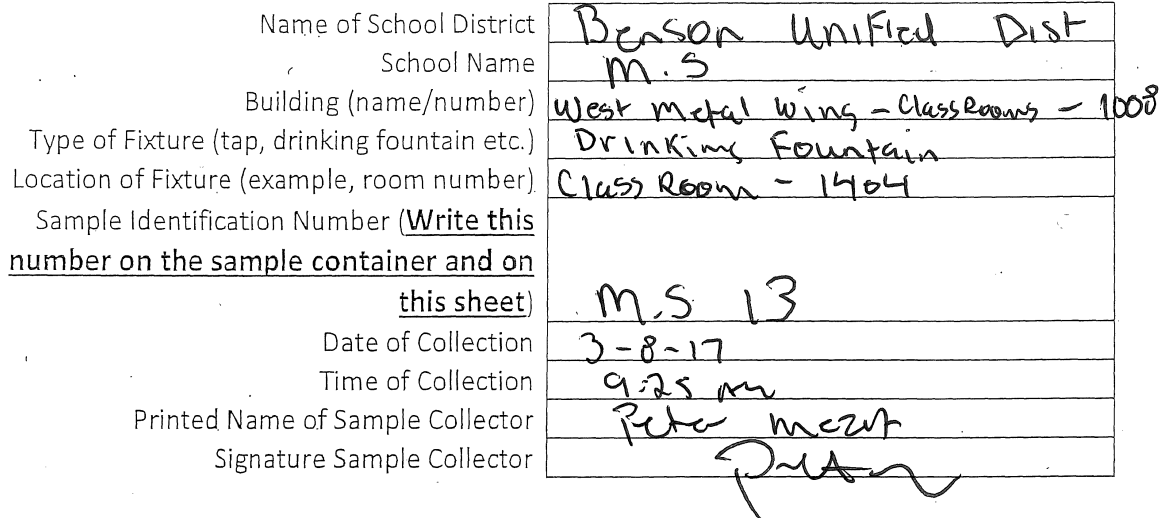 Name of School District Benson Unified Dist
School Name M.S
Building (name/number) West Metal Wing - ClassRooms - 1008
Type of Fixture (tap, drinking fountain etc.) Drinking Fountain
Location of Fixture (example, room number) Class Room - 1404
Sample Identification Number (Write this
number on the sample container and on
this sheet) M.S 13
Date of Collection 3-8-17
Time of Collection 9:25 Am
Printed Name of Sample Collector Peter
Signature Sample Collector